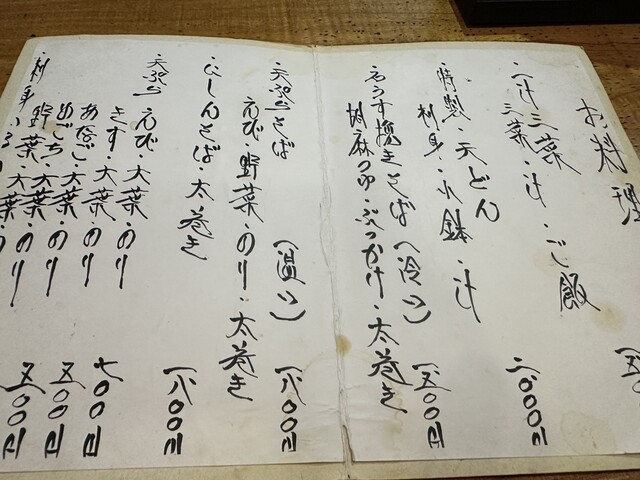 お料理
一汁三菜
三菜・汁・ご飯
特製・天どん
刺身・小鉢・汁
二、〇〇〇円
石うす挽きそば(冷い)
胡麻つゆ・ぶっかけ・太巻き
一、五〇〇円
天ぷらそば
(温い)
えび・野菜・のり・太巻き
一、八〇〇円
にしんそば・太巻き
一、八〇〇円
天ぷら
えび・大葉・のり
きす・大葉・のり
あなご・大葉・のり
七〇〇円
めごち・大葉・のり
五〇〇円
野菜・大葉・のり
五〇〇円
刺身